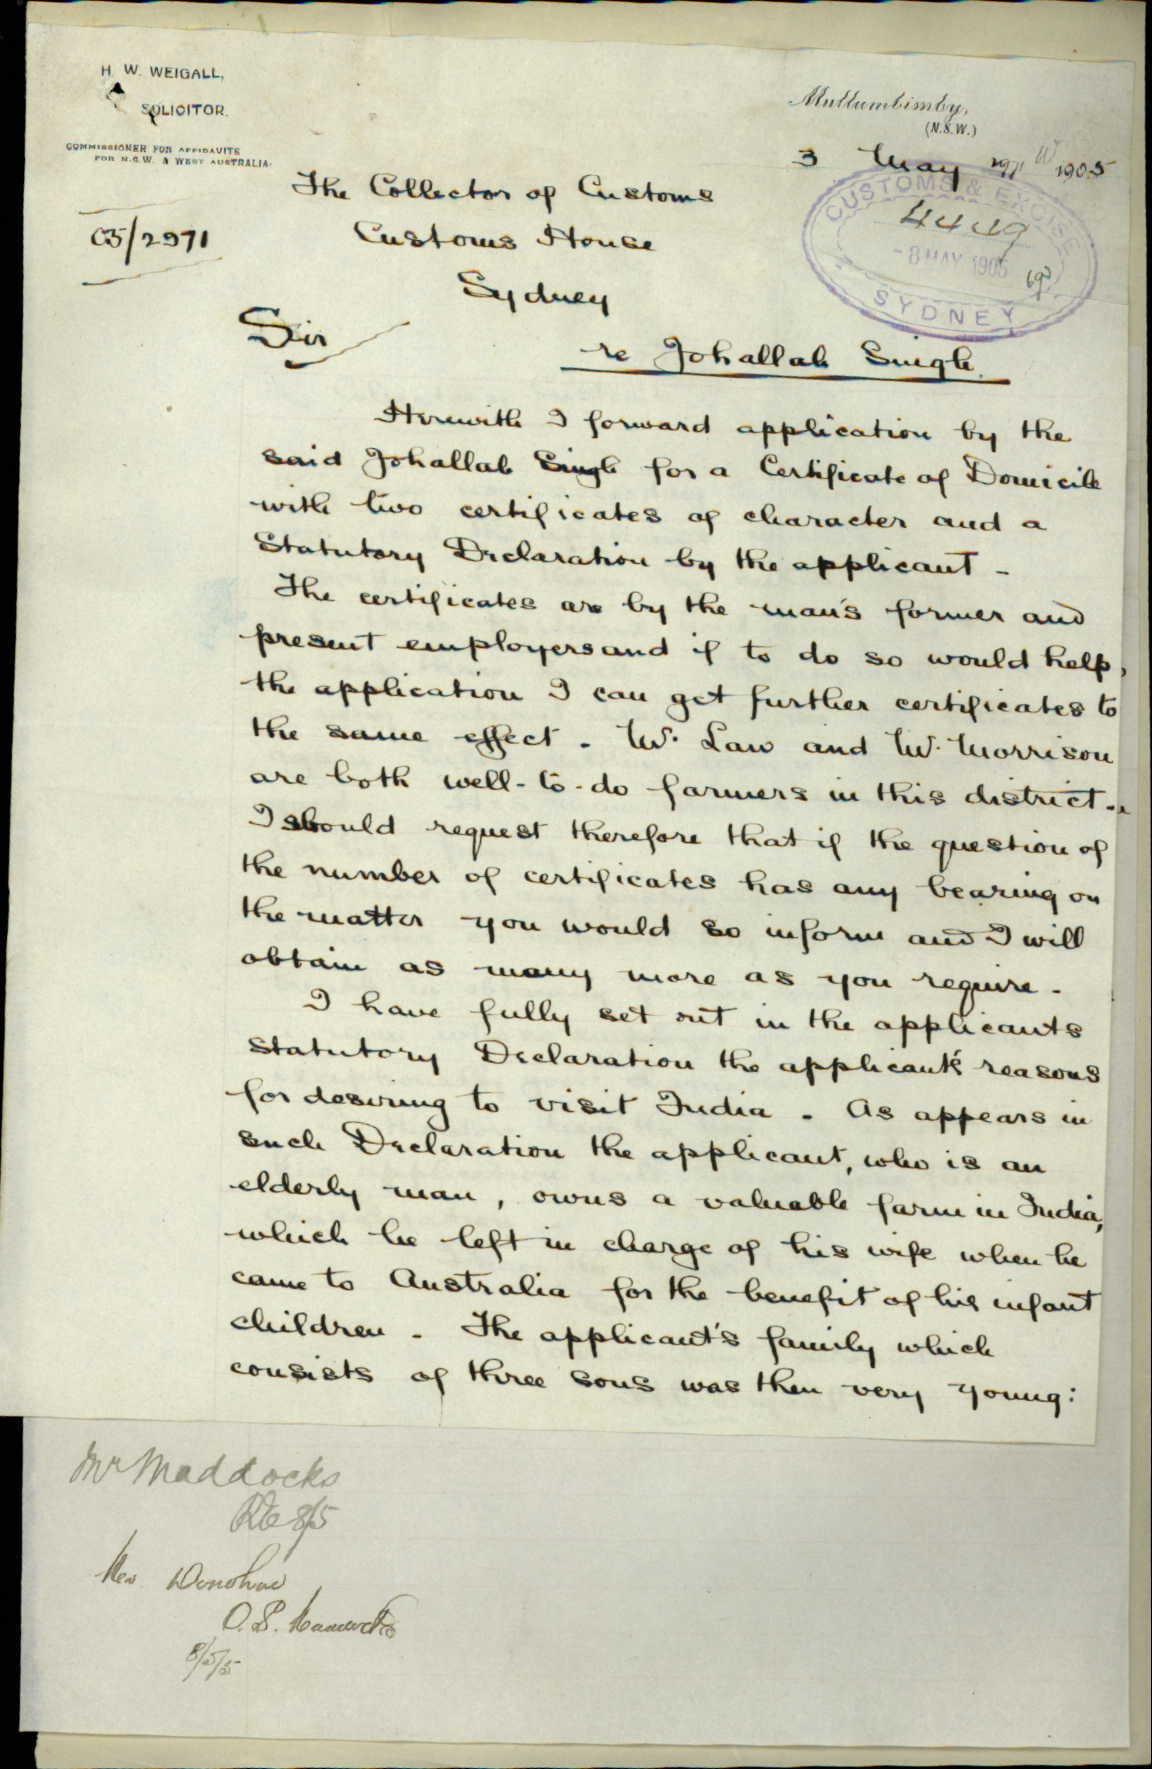 H. W. WEIGALL,
SOLICITOR.
COMMISSIONER FOR AFFIDAVITS
FOR N.S.W. & WEST AUSTRALIA.
Mullumbimby,
(N.S.W.)
3 May 1905
The Collector of Customs
C5/2971
Customs House
Sydney
CUSTOMS & EXCISE
4449
-8 MAY 1905
SYDNEY
Sir
re Johallab Singh.
Herewith I forward application by the
said Johallab Singh for a Certificate of Domicile
with two certificates of character and a
Statutory Declaration by the applicant -
The certificates are by the man's former and
present employers and if to do so would help,
the application I can get further certificates to
the same effect. W. Law and W. Morrison
are both well-to-do farmers in this district.
I should request therefore that if the question of
the number of certificates has any bearing on
the matter you would so inform and I will
obtain as many more as you require -
I have fully set out in the applicants
Statutory Declaration the applicant's reasons
for desiring to visit India. As appears in
such Declaration the applicant, who is an
elderly man, owns a valuable farm in India,
which he left in charge of his wife when he
came to Australia for the benefit of his infant
children. The applicant's family which
consists of three sons was then very young:
Mr Maddocks
8/5
Donohue
8/5/5